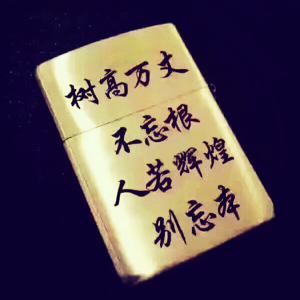 树高万丈
不忘根
人若辉煌
别忘本